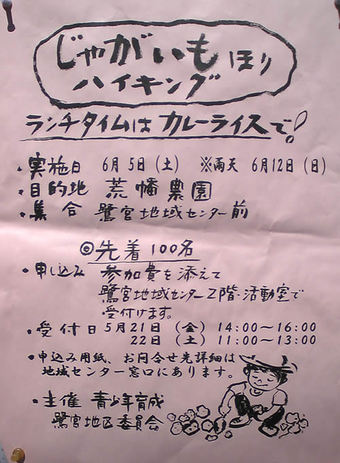 じゃがいもほり
ハイキング
ランチタイムはカレーライスで!
・実施日 6月5日(土) ※雨天 6月12日(日)
・目的地 荒幡農園
・集合 鷺宮地域センター前
◎先着100名
・申し込み 参加費を添えて
鷺宮地域センター2階・活動室で
受付けます。
・受付日 5月21日(金) 14:00〜16:00
22日(土) 11:00〜13:00
・申込み用紙、お問合せ先詳細は
地域センター窓口にあります。
・主催 青少年育成
鷺宮地区委員会